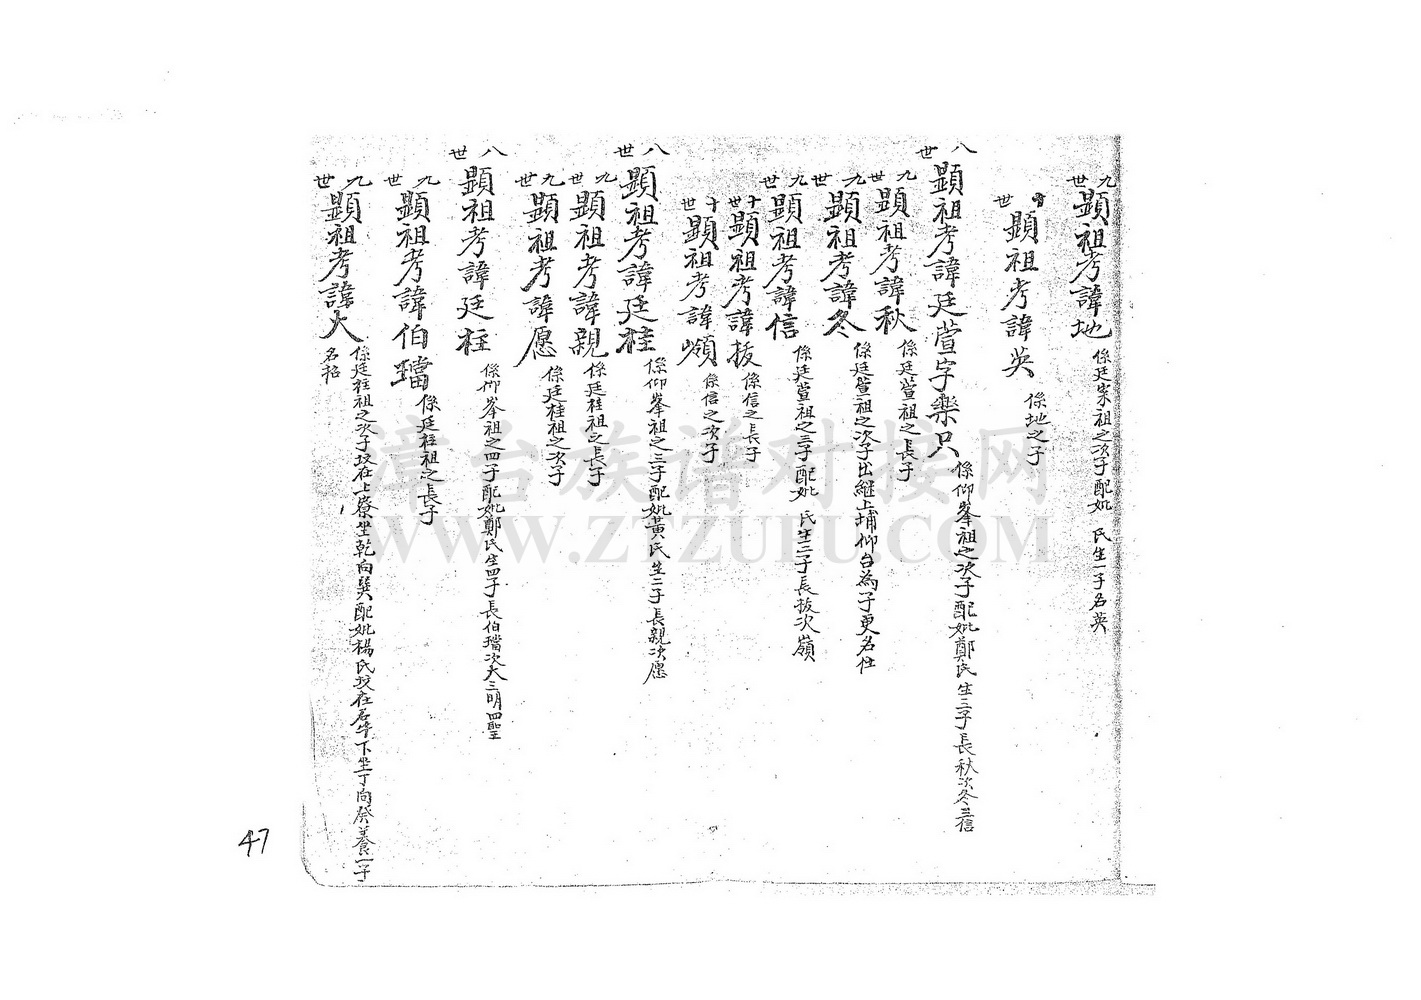 九世
顯祖考諱地
係廷宋祖之次子配妣 氏生一子名英
世
顯祖考諱英
係地之子
八世
顯祖考諱廷萱字樂只
係仰峯祖之次子配妣鄭氏生三子長秋次冬三信
九世
顯祖考諱秋
係廷萱祖之長子
九世
顯祖考諱冬
係廷萱祖之次子出継上埔仰台為子更名住
九世
顯祖考諱信
係廷萱祖之三子配妣 氏生二子長拔次嶺
十世
顯祖考諱拔
係信之長子
十世
顯祖考諱嶺
係信之次子
八世
顯祖考諱廷桂
係仰峯祖之三子配妣黃氏生二子長親次愿
九世
顯祖考諱親
係廷桂祖之長子
九世
顯祖考諱愿
係廷桂祖之次子
八世
顯祖考諱廷柱
係仰峯祖之四子配妣鄭氏生四子長伯璫次大三明四聖
九世
顯祖考諱伯璫
係廷柱祖之長子
九世
顯祖考諱大
係廷柱祖之次子坟在上寮坐乾向巽配妣楊氏坟在石牛下坐丁向癸養一子
名招
47
漳台族谱对接网
WWW.ZTZUPU.COM